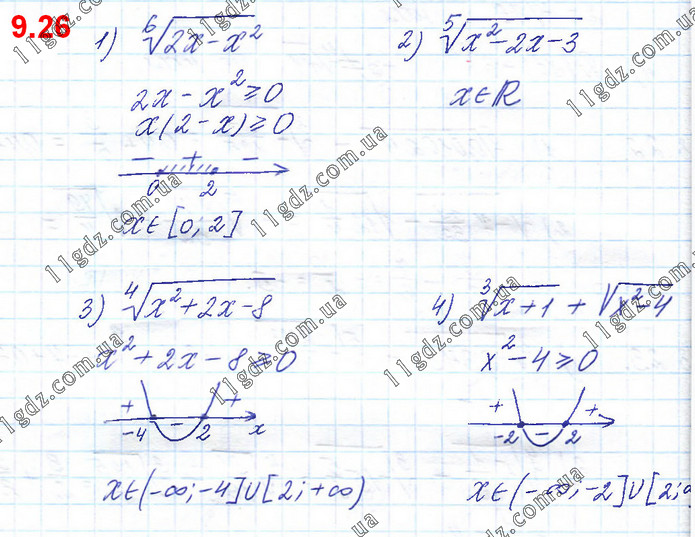 9.26
1) ⁶√(2x-x²)
2x-x²≥0
x(2-x)≥0
- + -
0 2
x∈[0;2]
2) ⁵√(x²-2x-3)
x∈R
3) ⁴√(x²+2x-8)
x²+2x-8≥0
+ - +
-4 2 x
x∈(-∞;-4]∪[2;+∞)
4) ³√(x+1) + √(x²-4)
x²-4≥0
+ - +
-2 2
x∈(-∞;-2]∪[2;
11gdz.com.ua
11gdz.com.ua
11gdz.com.ua
11gdz.com.ua
11gdz.com.ua
11gdz.com.ua
11gdz.com.ua
11gdz.com.ua